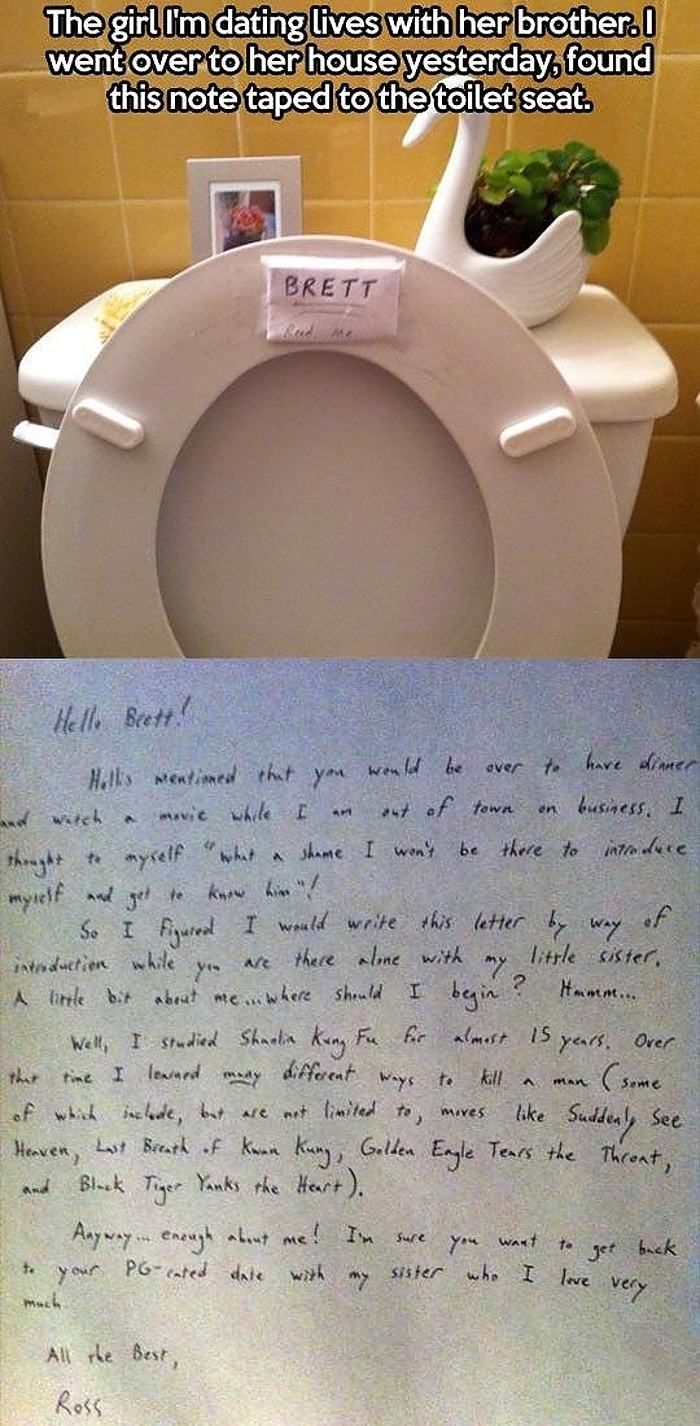 The girl I'm dating lives with her brother. I
went over to her house yesterday, found
this note taped to the toilet seat.
BRETT
Read Me
Hello Brett!
Hollis mentioned that you would be over to have dinner
and watch a movie while I am out of town on business. I
thought to myself "what a shame I won't be there to introduce
myself and get to know him"!
So I figured I would write this letter by way of
introduction while you are there alone with my little sister.
A little bit about me...where should I begin? Hmmm...
Well, I studied Shaolin Kung Fu for almost 15 years. Over
that time I learned many different ways to kill a man (some
of which include, but are not limited to, moves like Suddenly See
Heaven, Last Breath of Kwan Kung, Golden Eagle Tears the Throat,
and Black Tiger Yanks the Heart).
Anyway... enough about me! I'm sure you want to get back
to your PG-rated date with my sister who I love very
much.
All the Best,
Ross